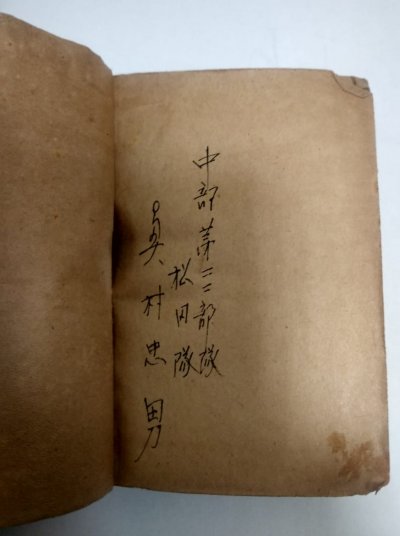 中部第三二部隊
松田隊
村忠男